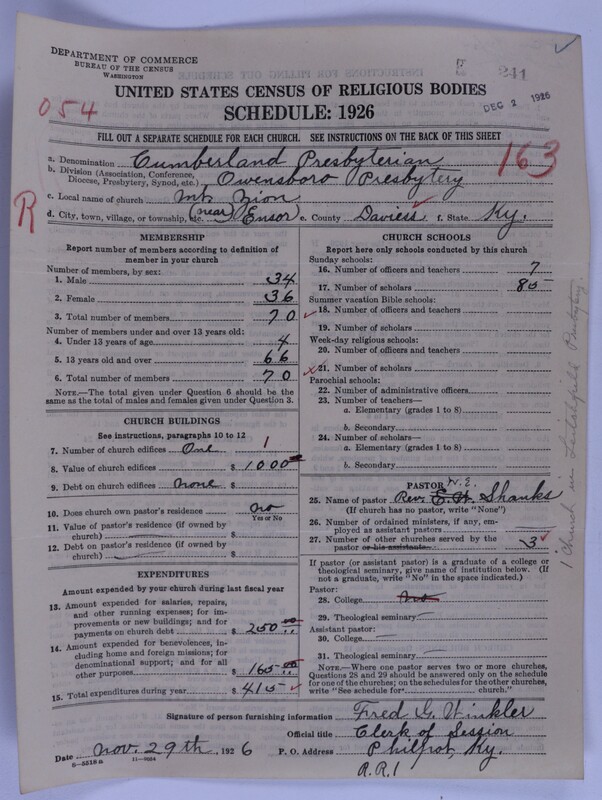 DEPARTMENT OF COMMERCE
BUREAU OF THE CENSUS
WASHINGTON
241
DEC 2 1926
UNITED STATES CENSUS OF RELIGIOUS BODIES
SCHEDULE: 1926
054
FILL OUT A SEPARATE SCHEDULE FOR EACH CHURCH. SEE INSTRUCTIONS ON THE BACK OF THIS SHEET
163
a. Denomination Cumberland Presbyterian
b. Division (Association, Conference, Diocese, Presbytery, Synod, etc.) Owensboro Presbytery
c. Local name of church Mt. Zion
R
d. City, town, village, or township, etc. (near) Ensor e. County Daviess f. State Ky.
MEMBERSHIP
Report number of members according to definition of
member in your church
Number of members, by sex:
1. Male 34
2. Female 36
3. Total number of members 70
Number of members under and over 13 years old:
4. Under 13 years of age 4
5. 13 years old and over 66
6. Total number of members 70
NOTE.—The total given under Question 6 should be
the same as the total of males and females given under Question 3.
CHURCH BUILDINGS
See instructions, paragraphs 10 to 12
7. Number of church edifices One 1
8. Value of church edifices $ 1000
9. Debt on church edifices none $
10. Does church own pastor's residence no
Yes or No
11. Value of pastor's residence (if owned by
church) $
12. Debt on pastor's residence (if owned by
church) $
EXPENDITURES
Amount expended by your church during last fiscal year
13. Amount expended for salaries, repairs,
and other running expenses; for im-
provements or new buildings; and for
payments on church debt $ 250 00
14. Amount expended for benevolences, in-
cluding home and foreign missions; for
denominational support; and for all
other purposes $ 165 00
15. Total expenditures during year $ 415
CHURCH SCHOOLS
Report here only schools conducted by this church
Sunday schools:
16. Number of officers and teachers 7
17. Number of scholars 85
Summer vacation Bible schools:
18. Number of officers and teachers
19. Number of scholars
Week-day religious schools:
20. Number of officers and teachers
21. Number of scholars
Parochial schools:
22. Number of administrative officers
23. Number of teachers—
a. Elementary (grades 1 to 8)
b. Secondary
24. Number of scholars—
a. Elementary (grades 1 to 8)
b. Secondary
PASTOR
W. E.
25. Name of pastor Rev. Shanks
(If church has no pastor, write "None")
26. Number of ordained ministers, if any, em-
ployed as assistant pastors
27. Number of other churches served by the
pastor or his assistants 3
If pastor (or assistant pastor) is a graduate of a college or
theological seminary, give name of institution below. (If
not a graduate, write "No" in the space indicated.)
Pastor:
28. College No
29. Theological seminary
Assistant pastor:
30. College
31. Theological seminary
NOTE.—Where one pastor serves two or more churches,
Questions 28 and 29 should be answered only on the schedule
for one of the churches; on the schedules for the other churches,
write "See schedule for church."
1 church in Leitchfield Presbytery.
Signature of person furnishing information Fred G. Winkler
Official title Clerk of Session
Date Nov. 29th, 1926 P. O. Address Philpot, Ky.
R.R. 1